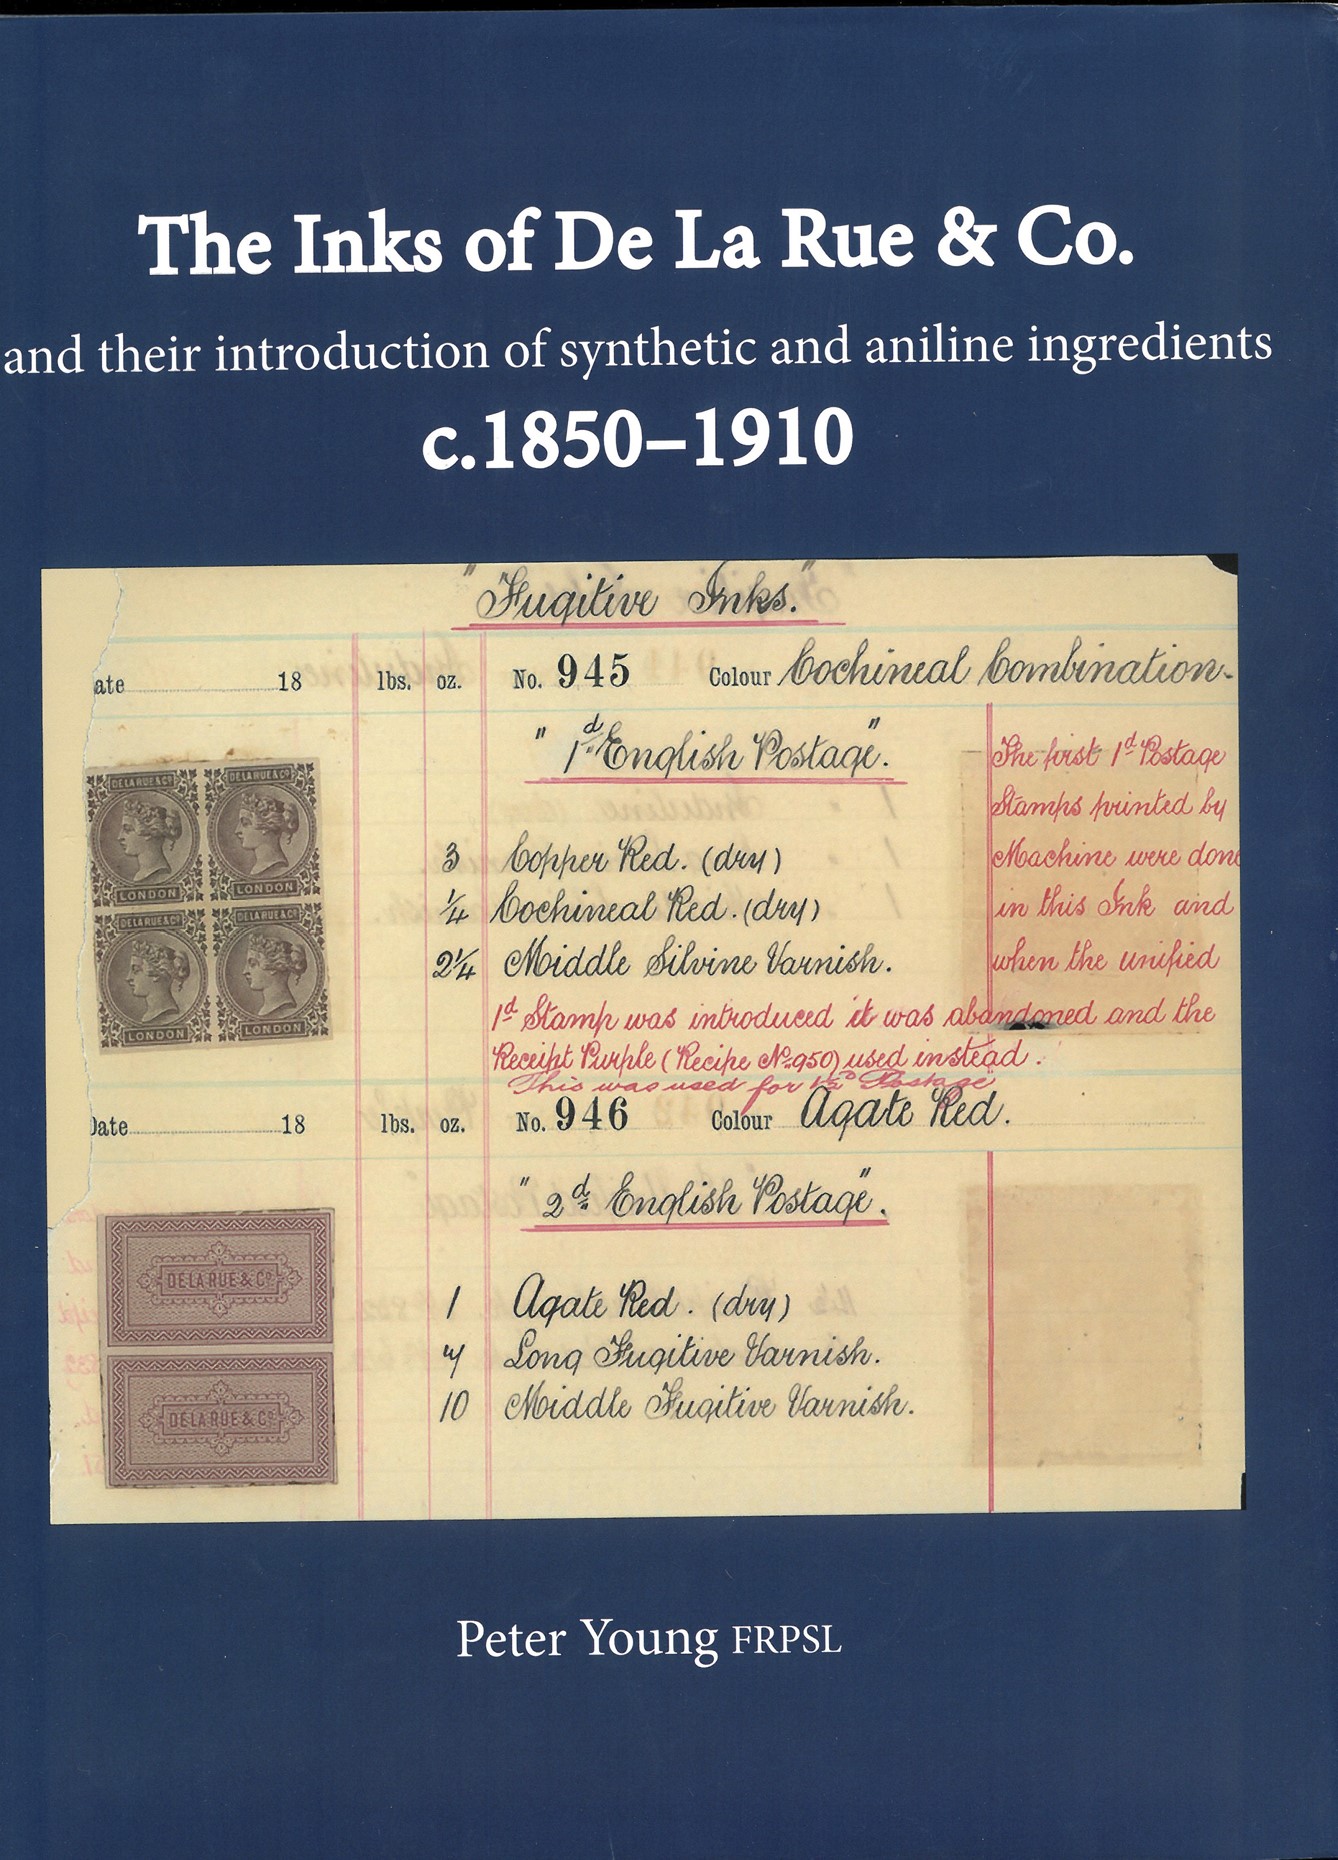 The Inks of De La Rue & Co.
and their introduction of synthetic and aniline ingredients
c.1850–1910
"Fugitive Inks."
ate 18 lbs. oz. No. 945 Colour Cochineal Combination-
"1d English Postage".
3 Copper Red. (dry)
¼ Cochineal Red. (dry)
2¼ Middle Silvine Varnish.
The first 1d Postage
Stamps printed by
Machine were done
in this Ink and
when the unified
1d Stamp was introduced it was abandoned and the
Receipt Purple (Recipe No. 950) used instead.
This was used for 1½d Postage
DE LA RUE & CO
LONDON
DE LA RUE & CO
LONDON
DE LA RUE & CO
LONDON
DE LA RUE & CO
LONDON
Date 18 lbs. oz. No. 946 Colour Agate Red.
"2d English Postage".
1 Agate Red. (dry)
Long Fugitive Varnish.
10 Middle Fugitive Varnish.
DE LA RUE & CO
DE LA RUE & CO
Peter Young FRPSL